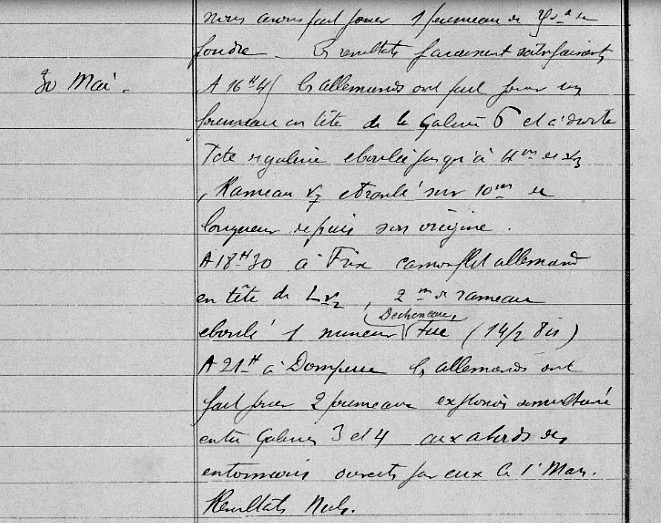 nous avons fait jouer 1 fourneau de de
foudre. Les resultats paraissent satisfaisants
30 Mai. A 16H45 les allemands ont fait jouer un
fourneau en tête de la Galerie 6 et à droite
Tete galerie eboulée jusqu'à 4m
Rameau eboulé sur 10m de
longueur depuis son origine.
A 18H30 à Frix camouflet allemand
en tête de , 2m de rameau
Decheneaux
eboulé 1 mineur tué (14/2 Bis)
A 21H à Dompierre les allemands ont
fait jouer 2 fourneaux explosion simultanée
entre Galeries 3 et 4 aux abords des
entonnoirs ouverts par eux le 1r Mars.
Resultats Nuls.